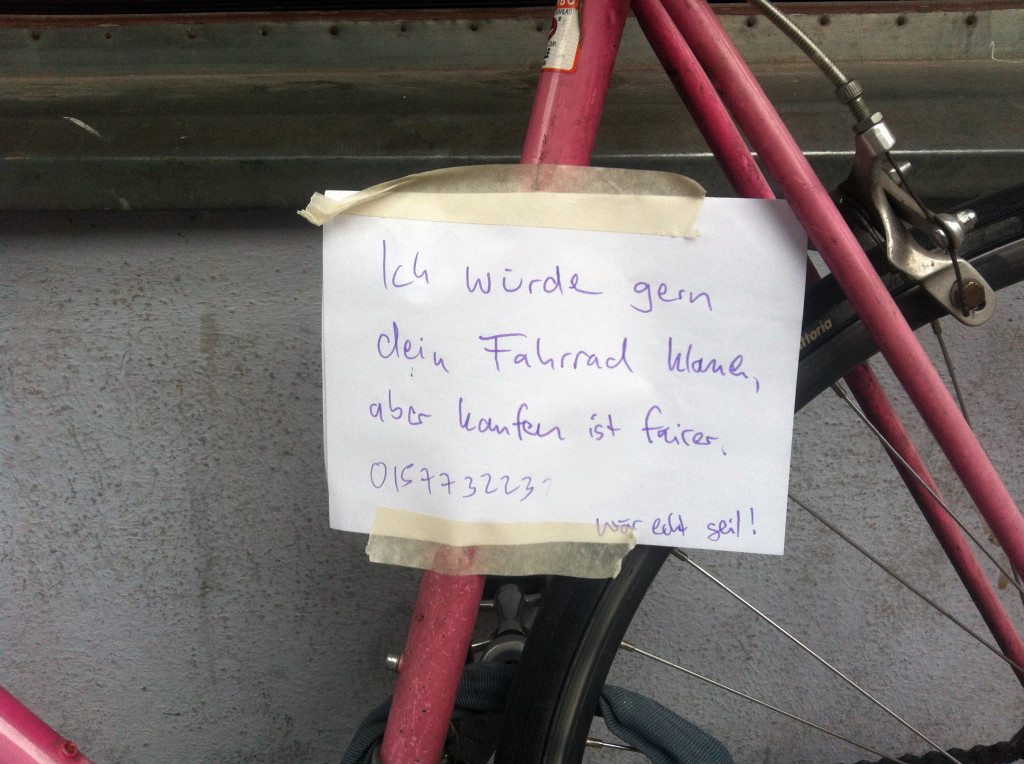 Ich würde gern
dein Fahrrad klauen,
aber kaufen ist fairer.
01577 32223
wär echt geil!
ttoria